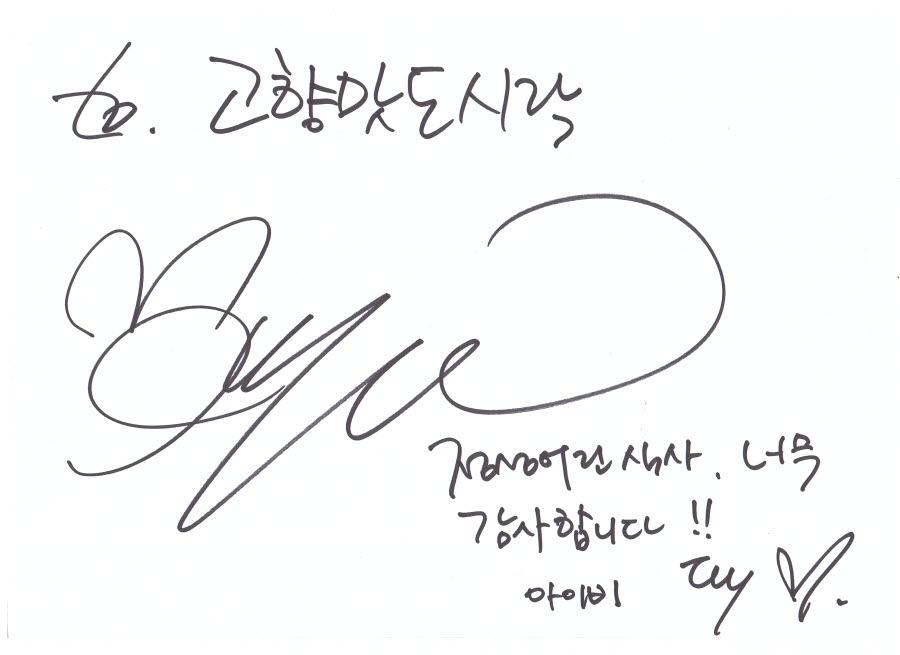 to. 고향맛도시락
정성어린 식사, 너무
감사합니다 !!
아이비 Ivy ♡.